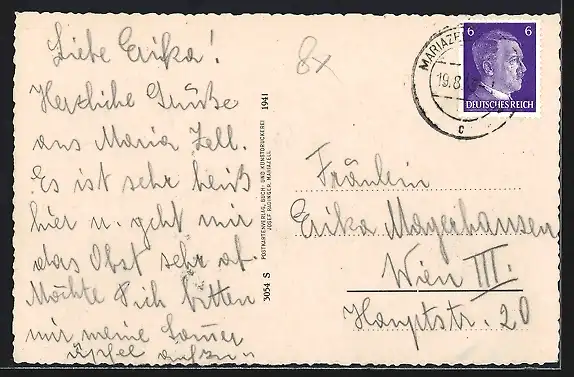 Liebe Erika!
Herzliche Grüße
aus Maria Zell.
Es ist sehr heiß
hier u. geht mir
das Obst sehr ab.
Möchte Dich bitten
mir meine
Äpfel
8x
1941
POSTKARTENVERLAG, BUCH- UND KUNSTDRUCKEREI
JOSEF RADINGER, MARIAZELL
3054 S
MARIAZELL
19.8.
c
6 6
DEUTSCHES REICH
Fräulein
Erika Mayerhansen
Wien III.
Hauptstr. 20